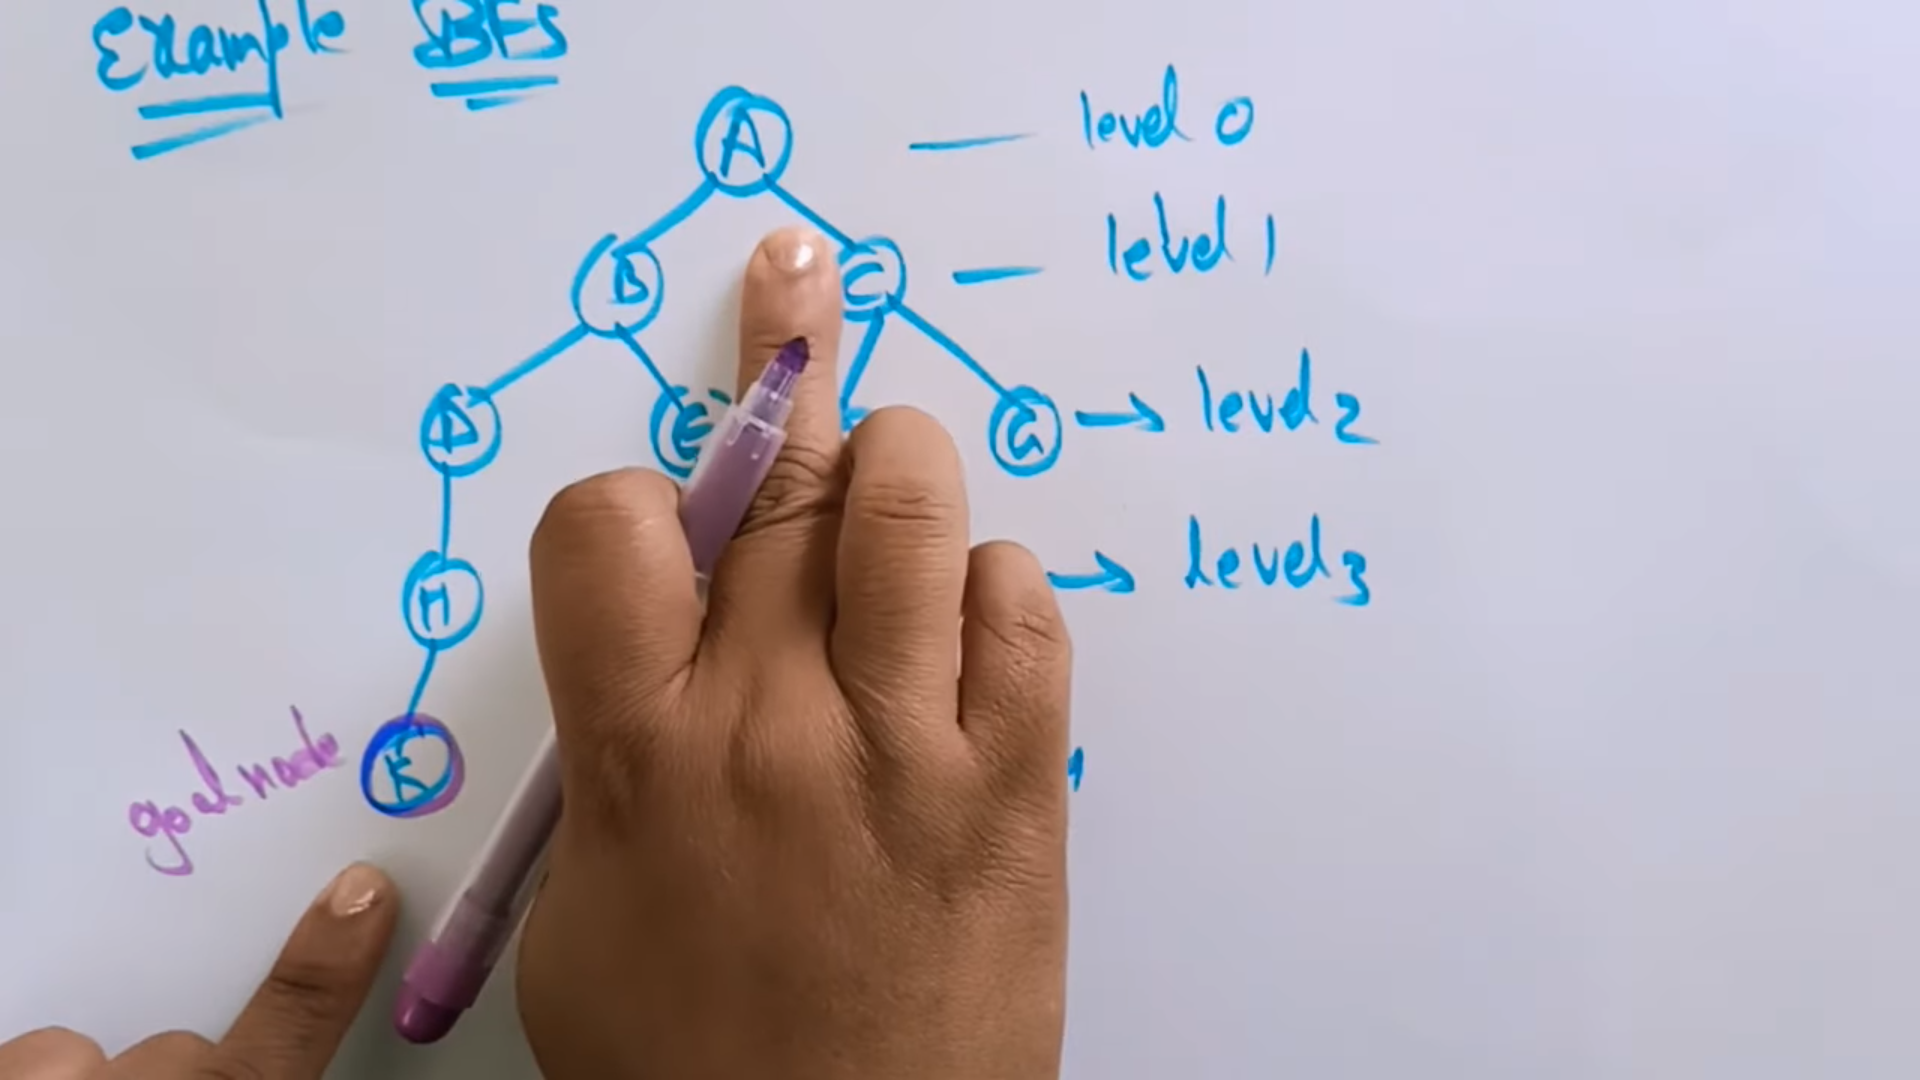 Example BFS
A
level 0
B
C
level 1
D
E
G
level 2
H
level 3
goal node
K